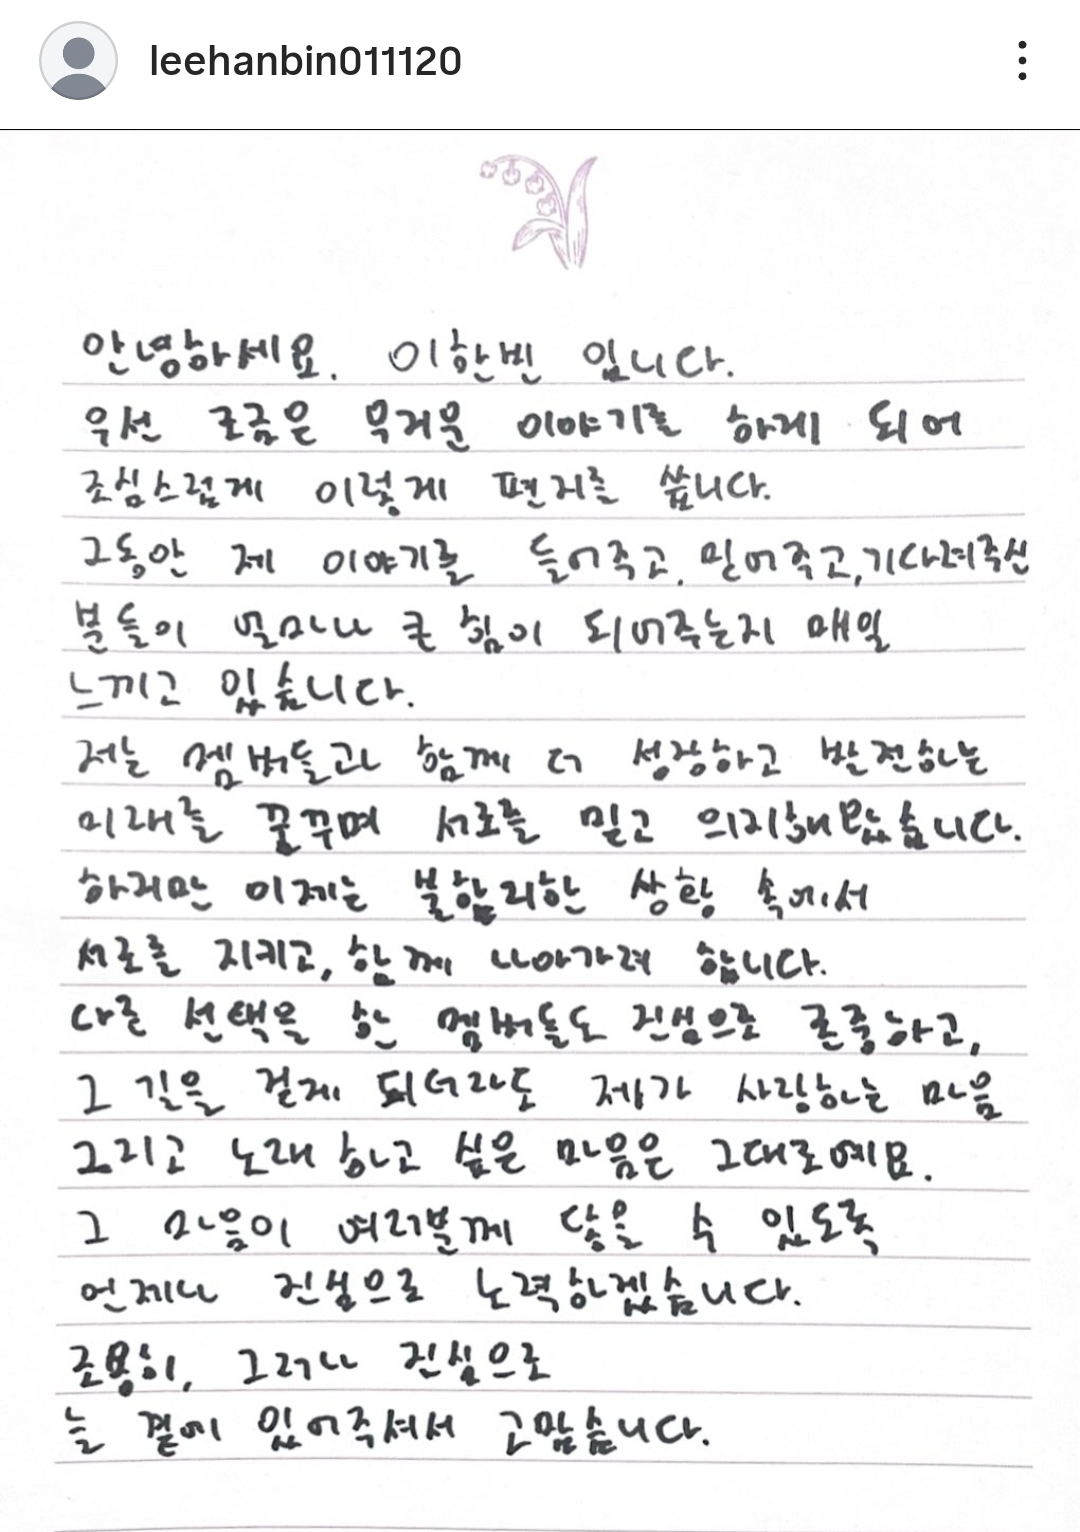 leehanbin011120
안녕하세요. 이한빈 입니다.
우선 조금은 무거운 이야기를 하게 되어
조심스럽게 이렇게 편지를 씁니다.
그동안 제 이야기를 들어주고, 믿어주고, 기다려주신
분들이 얼마나 큰 힘이 되어주는지 매일
느끼고 있습니다.
저는 멤버들과 함께 더 성장하고 발전하는
미래를 꿈꾸며 서로를 믿고 의지해왔습니다.
하지만 이제는 불합리한 상황 속에서
서로를 지키고, 함께 나아가려 합니다.
다른 선택을 한 멤버들도 진심으로 존중하고,
그 길을 걷게 되더라도 제가 사랑하는 마음
그리고 노래하고 싶은 마음은 그대로예요.
그 마음이 여러분께 닿을 수 있도록
언제나 진심으로 노력하겠습니다.
조용히, 그러나 진심으로
늘 곁에 있어주셔서 고맙습니다.